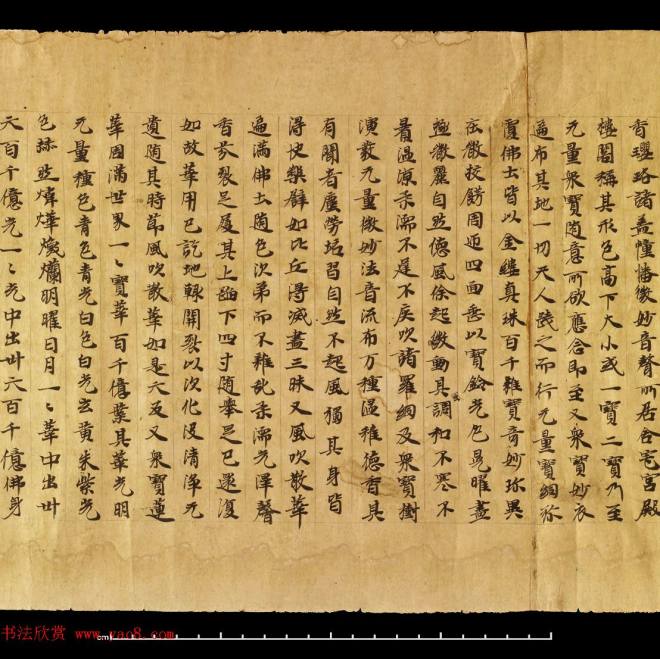 香瓔珞諸蓋幢幡微妙音聲所居舍宅宮殿
樓閣稱其形色高下大小或一寶二寶乃至
无量衆寶随意所欲應念即至又衆寶妙衣
遍布其地一切天人踐之而行无量寶網弥
覆佛土皆以金縷真珠百千雜寶奇妙珎異
庄嚴挍餝周迊四面垂以寶鈴光色晃曜盡
極嚴麗自然德風徐起微動其調和不寒不
暑温涼柔濡不遲不疾吹諸羅網及衆寶樹
演發无量微妙法音流布万種温雅德香其
有聞者塵勞垢習自然不起風獨其身皆
得快樂辟如比丘得滅盡三昧又風吹散華
遍滿佛土随色次弟而不雜乱柔濡光澤馨
香芬裂足履其上蹈下四寸随舉足已還復
如故華用已訖地輙開裂以次化没清淨无
遺随其時節風吹散華如是六反又衆寶蓮
華周滿世界一ヽ寶華百千億葉其華光明
无量種色青色青光白色白光玄黄朱紫光
色赫然煒燁煥爛明曜日月一ヽ華中出卅
六百千億光一ヽ光中出卅六百千億佛身
书法欣赏 www.yac8.com
cm